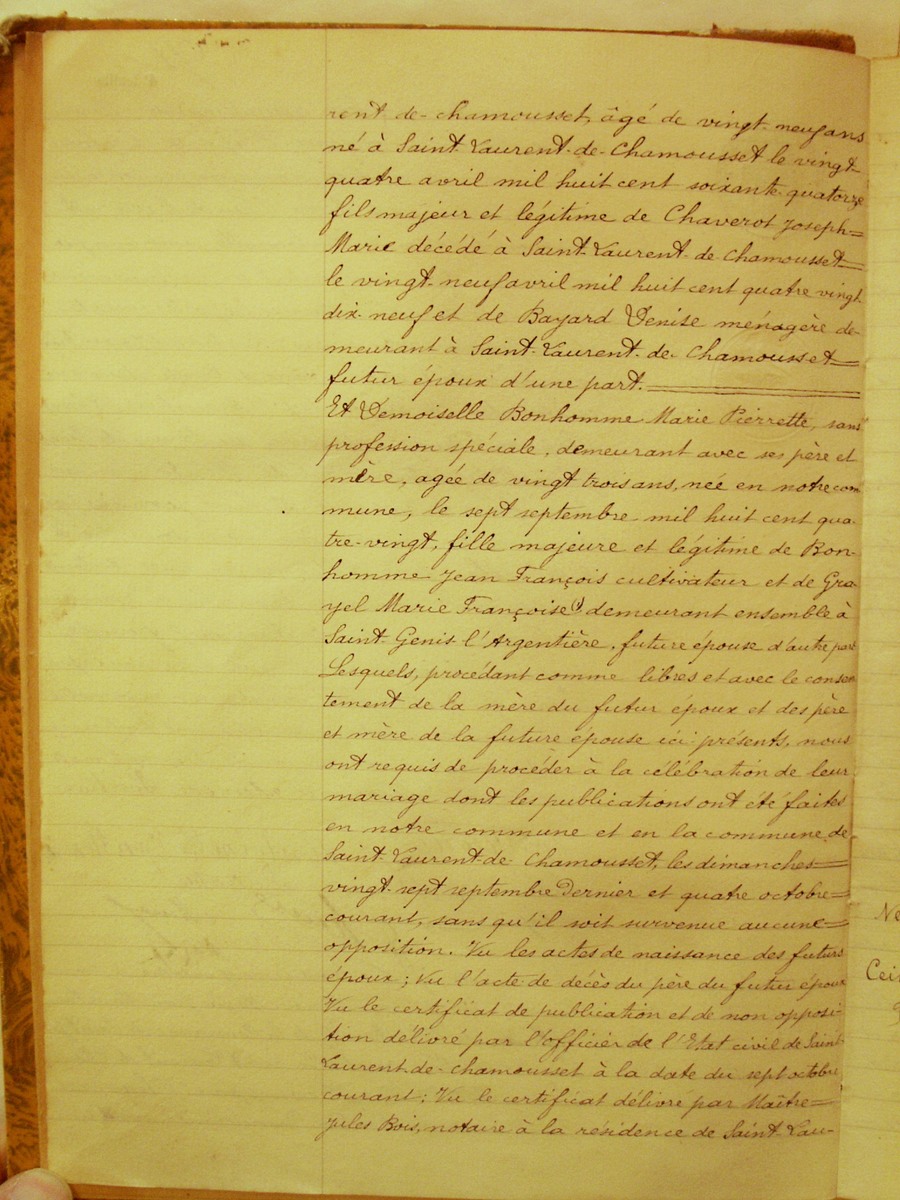 rent de chamousset, âgé de vingt-neuf ans
né à Saint-Laurent-de-Chamousset le vingt-
quatre avril mil huit cent soixante-quatorze
fils majeur et légitime de Chaverot Joseph=
Marie décédé à Saint-Laurent-de-Chamousset=
le vingt-neuf avril mil huit cent quatre vingt
dix-neuf et de Bayard Denise ménagère de-
meurant à Saint-Laurent-de-Chamousset=
futur époux d'une part.
Et Demoiselle Bonhomme Marie Pierrette, sans
profession spéciale, demeurant avec ses père et
mère, agée de vingt trois ans, née en notre com
mune, le sept septembre mil huit cent qua-
tre-vingt, fille majeure et légitime de Bon-
homme Jean François cultivateur et de Gra-
yel Marie Françoise (1) demeurant ensemble à
Saint-Genis l'Argentière, future épouse d'autre part
Lesquels, procédant comme libres et avec le consen
tement de la mère du futur époux et des père
et mère de la future épouse ici présents, nous
ont requis de procéder à la célébration de leur
mariage dont les publications ont été faites
en notre commune et en la commune de
Saint-Laurent-de-Chamousset, les dimanches=
vingt-sept septembre Dernier et quatre octobre=
courant, sans qu'il soit survenue aucune=
opposition. Vu les actes de naissance des futurs
époux; Vu l'acte de décès du père du futur époux
Vu le certificat de publication et de non opposi-
tion délivré par l'officier de l'Etat civil de Saint-
Laurent-de-Chamousset à la date du sept octobre
courant; Vu le certificat délivré par Maître=
Jules Bois, notaire à la résidence de Saint-Lau-
Ne
Cei